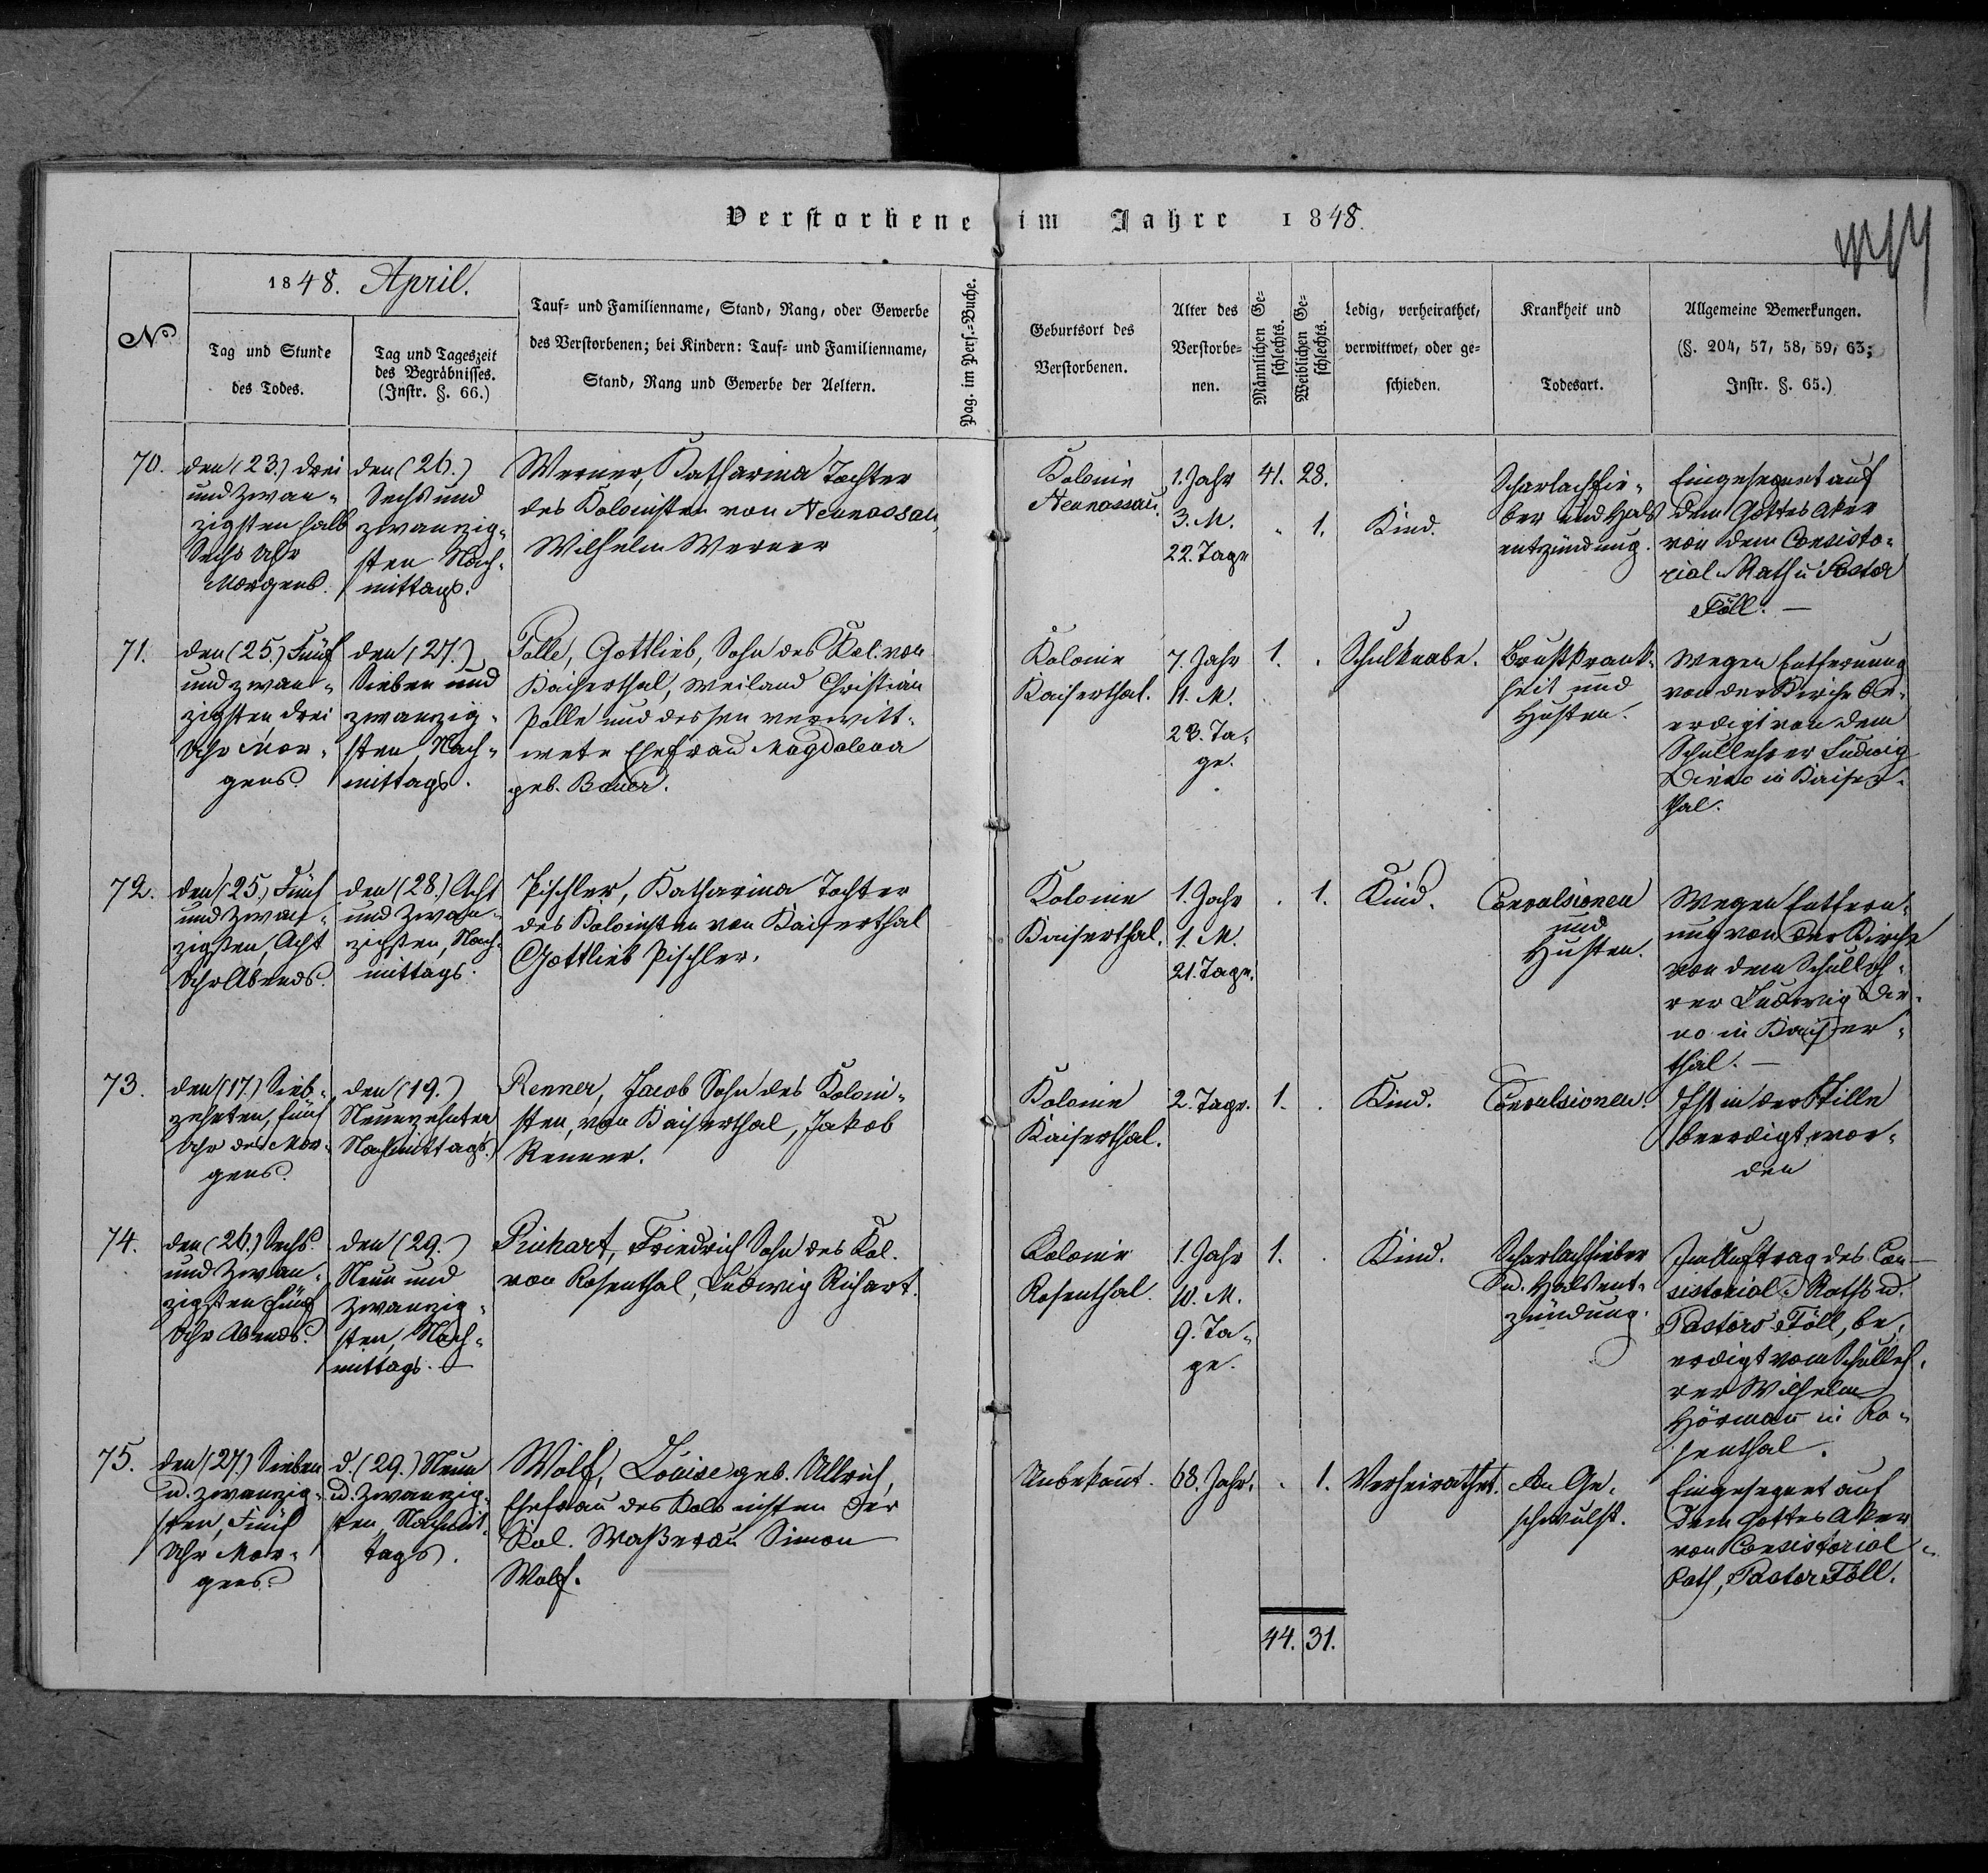 Verstorbene im Jahre 1848.
No
1848. April.
Tag und Stunde
des Todes.
Tag und Tageszeit
des Begräbnisses.
(Instr. §. 66.)
Tauf- und Familienname, Stand, Rang, oder Gewerbe
des Verstorbenen; bei Kindern: Tauf- und Familienname,
Stand, Rang und Gewerbe der Aeltern.
Pag. im Pers.-Buche.
Geburtsort des
Verstorbenen.
Alter des
Verstorbe-
nen.
Männlichen Ge-
schlechts.
Weiblichen Ge-
schlechts.
Ledig, verheirathet,
verwittwet, oder ge-
schieden.
Krankheit und
Todesart.
Allgemeine Bemerkungen.
(§. 204, 57, 58, 59, 63;
Instr. §. 65.)
70.
den (23.) drei
und zwan-
zigsten halb
Sechs Uhr
Morgens.
den (26.)
Sechs und
zwanzig-
sten Nach-
mittags.
Werner, Katharina Tochter
des Kolonisten von Neunassau,
Wilhelm Werner
Kolonie
Neunassau.
1. Jahr
3. M.
22. Tage
41. 28.
1.
Kind.
Scharlachfie-
ber und Hals
entzündung.
Eingesegnet auf
dem Gottes Aker
von dem Consisto-
rial-Rath u Pastor
Föll. —
71.
den (25.) Fünf
und zwan-
zigsten, drei
Uhr Mor-
gens.
den (27.)
Sieben und
zwanzig-
sten, Nach-
mittags.
Polle, Gottlieb, Sohn des Kol. von
Kaiserthal, weiland Christian
Polle und dessen verwitt-
wete Ehefrau Magdalena
geb. Bauer.
Kolonie
Kaiserthal.
7. Jahr
11. M.
23. Ta-
ge.
1.
Schulknabe.
Brustkrank-
heit und
Husten.
Wegen Entfernung
von der Kirche be-
erdigt von dem
Schullehrer Ludwig
in Kaiser-
thal.
72.
den (25.) Fünf
und zwan-
zigsten, Acht
Uhr Abends.
den (28.) Acht
und zwan-
zigsten, Nach-
mittags.
Pischler, Katharina Tochter
des Kolonisten von Kaiserthal
Gottlieb Pischler.
Kolonie
Kaiserthal.
1. Jahr
1. M.
21. Tage.
1.
Kind.
Convulsionen
und
Husten.
Wegen Entfern-
ung von der Kirche
von dem Schulleh-
rer Ludwig
in Kaiser-
thal. —
73.
den (17.) Sieb-
zehnten, fünf
Uhr des Mor-
gens.
den (19.)
Neunzehnten
Nachmittags.
Renner, Jacob Sohn des Koloni-
sten, von Kaiserthal, Jakob
Renner.
Kolonie
Kaiserthal.
2. Tage.
1.
Kind.
Convulsionen.
Ist in der Stille
beerdigt wor-
den
74.
den (26.) Sechs
und zwan-
zigsten Fünf
Uhr Abends.
den (29.)
Neun und
zwanzig-
sten, Nach-
mittags.
Richart, Friedrich Sohn des Kol.
von Rosenthal, Ludwig Richart.
Kolonie
Rosenthal.
1. Jahr
10. M.
9. Ta-
ge.
1.
Kind.
Scharlachfieber
u. Halsent-
zündung.
Im Auftrag des Con-
sistorial-Raths u.
Pastors Föll, be-
erdigt vom Schulleh-
rer Wilhelm
Hörman in Ro-
senthal.
75.
den (27.) Sieben
u. zwanzig-
sten, Fünf
Uhr Mor-
gens.
d. (29.) Neun
u. zwanzig-
sten, Nachmit-
tags.
Wolf, Louise geb. Ullrich,
Ehefrau des Kolonisten der
Kol. Waßerau Simon
Wolf.
Unbekant.
68. Jahr.
1.
Verheirathet.
An Ge-
schwulst.
Eingesegnet auf
dem Gottes Aker
von Consistorial-
Rath, Pastor Föll.
44. 31.